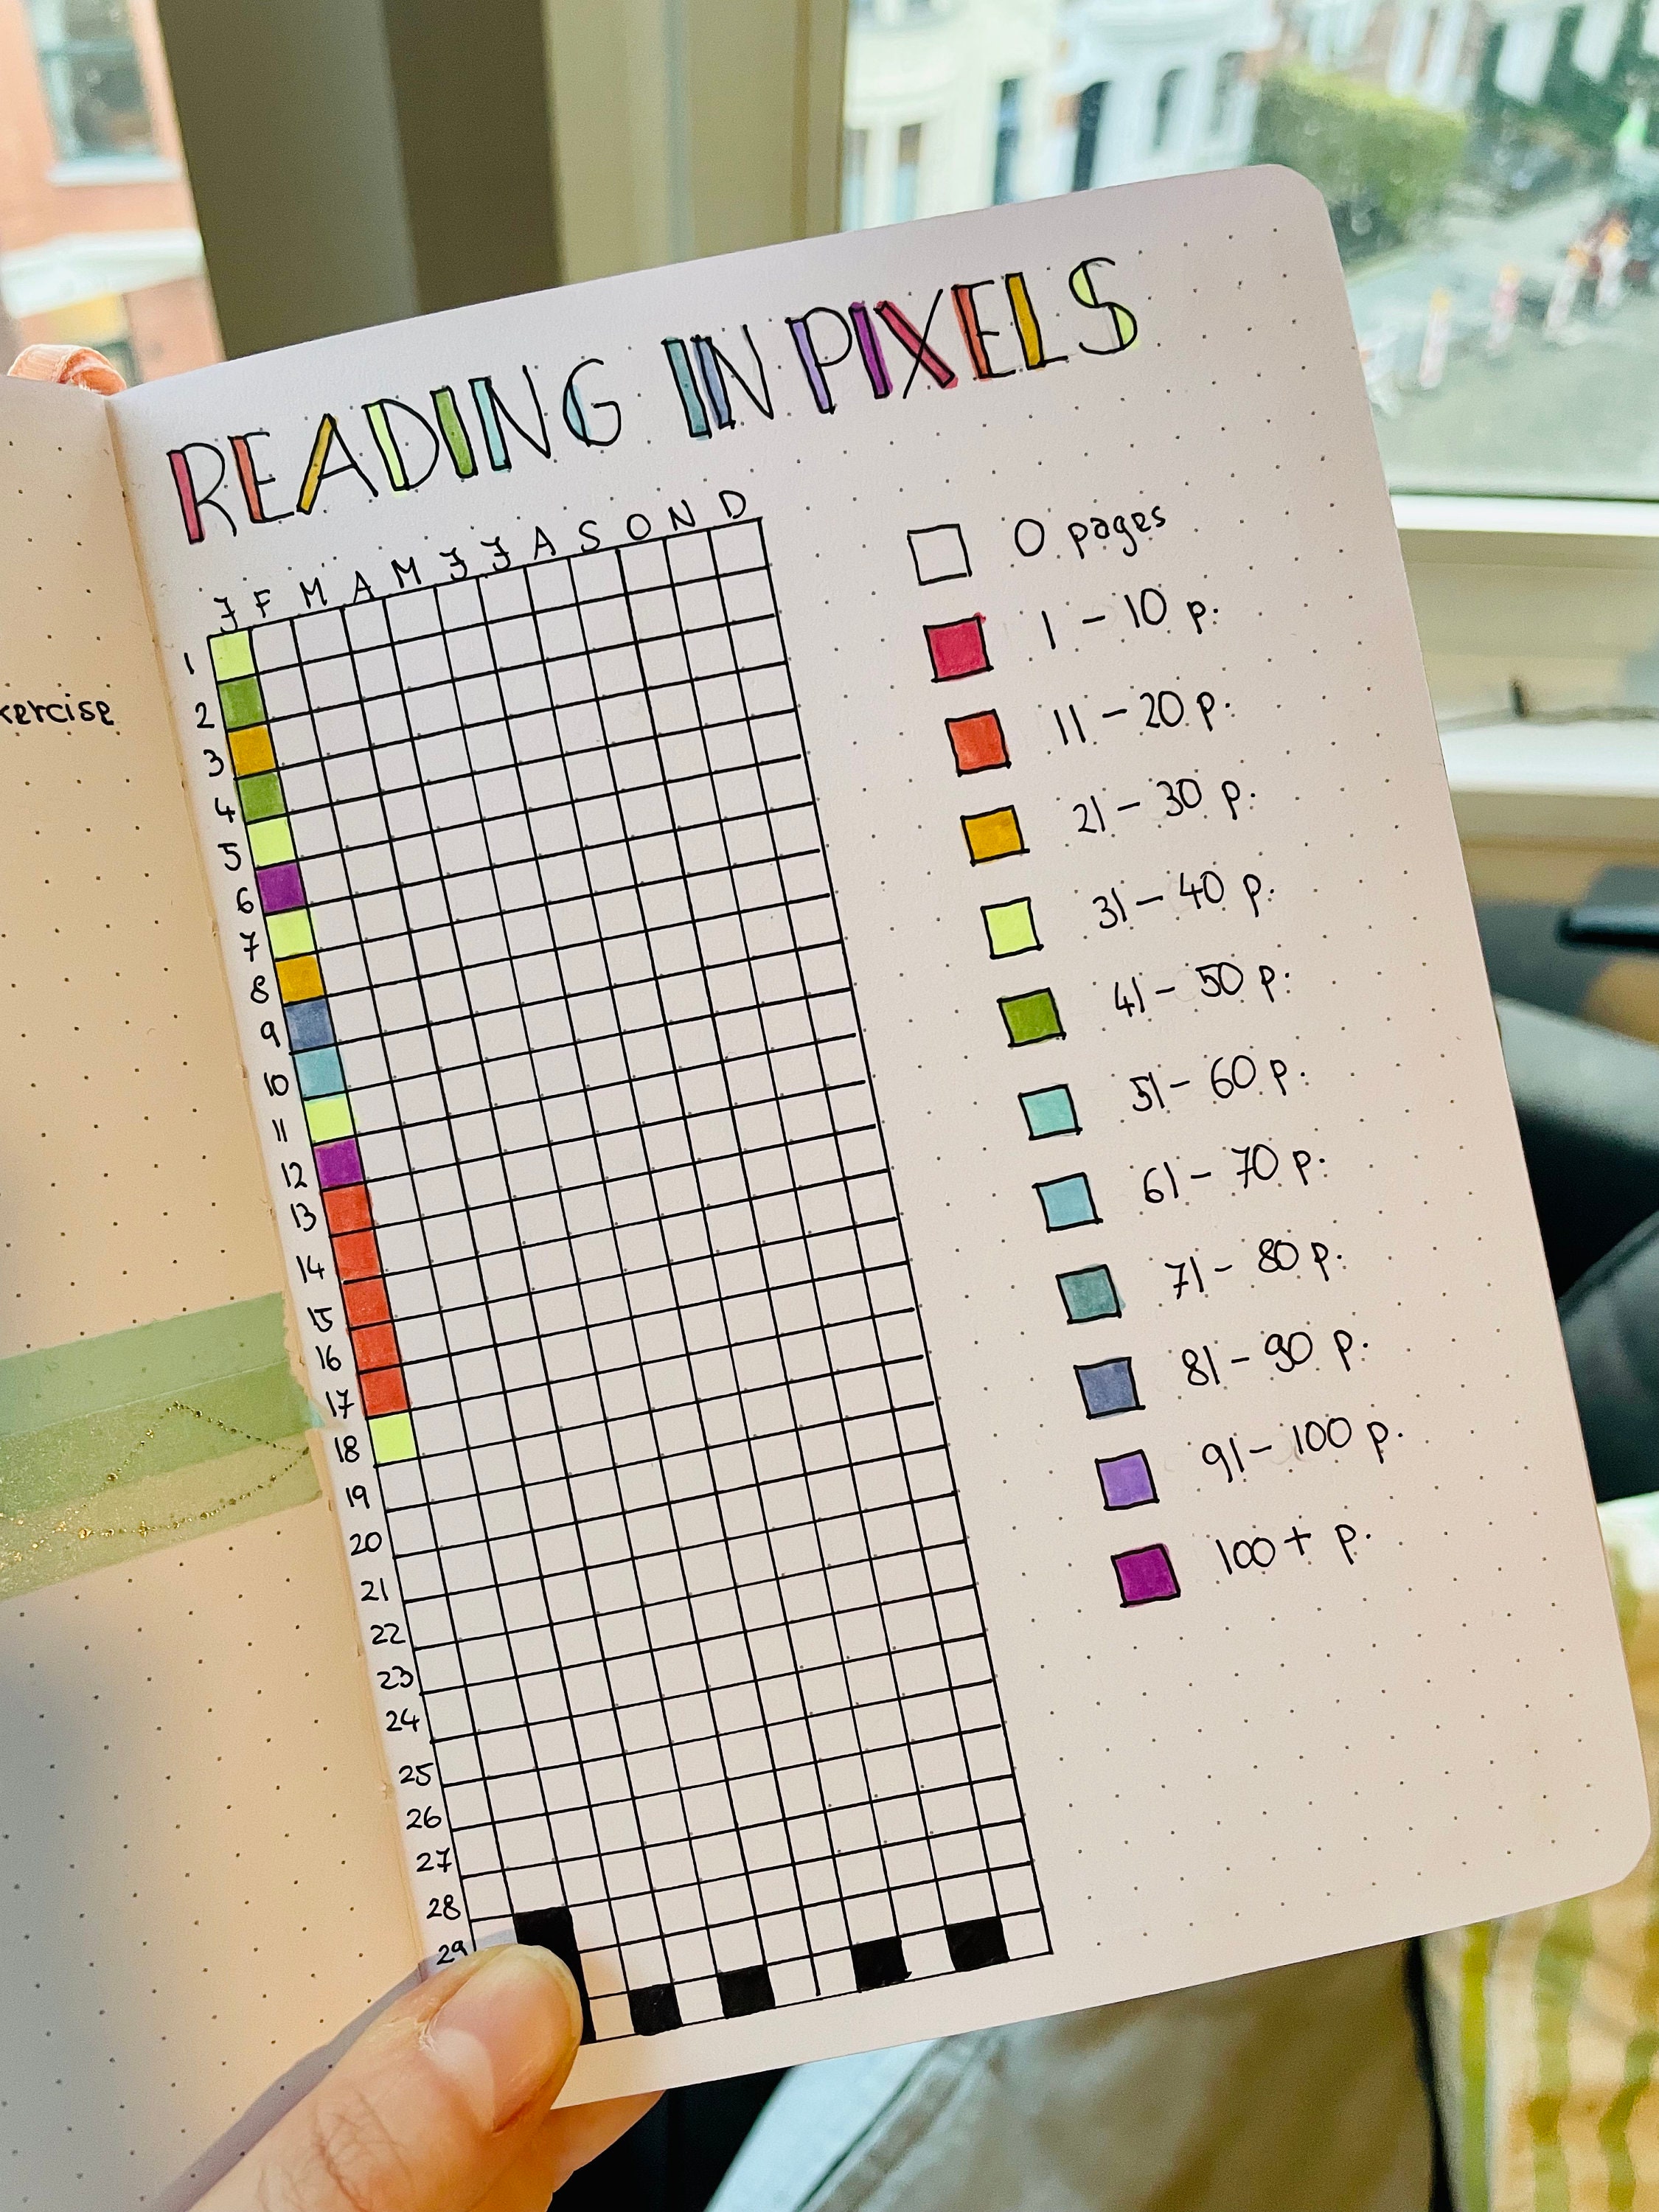 xercise
READING IN PIXELS
J F M A M J J A S O N D
1
2
3
4
5
6
7
8
9
10
11
12
13
14
15
16
17
18
19
20
21
22
23
24
25
26
27
28
29
0 pages
1 - 10 p.
11 - 20 p.
21 - 30 p.
31 - 40 p.
41 - 50 p.
51 - 60 p.
61 - 70 p.
71 - 80 p.
81 - 90 p.
91 - 100 p.
100+ p.